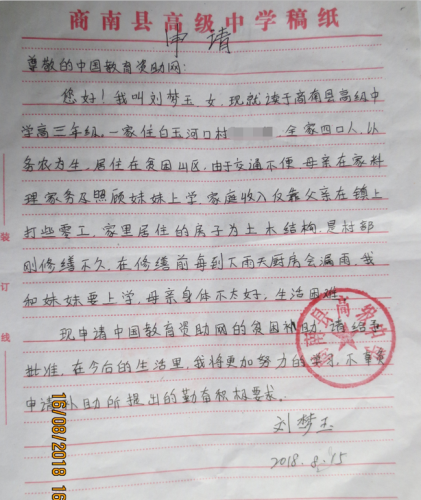 商南县高级中学稿纸
申请
尊敬的中国教育资助网:
您好!我叫刘梦玉,女,现就读于商南县高级中
学高三年级。一家住白玉河口村 全家四口人,以
务农为生,居住在贫困山区,由于交通不便,母亲在家料
理家务及照顾妹妹上学,家庭收入仅靠父亲在镇上
打些零工,家里居住的房子为土木结构,是村部
刚修缮不久,在修缮前每到下雨天厨房会漏雨,我
和妹妹要上学,母亲身体不太好,生活困难。
现申请中国教育资助网的贫困补助,请给予
批准,在今后的生活里,我将更加努力的学习,不辜负
申请补助所提出的勤奋积极要求。
刘梦玉
2018.8.15
装
订
线
商南县高级中学
16/08/2018 16